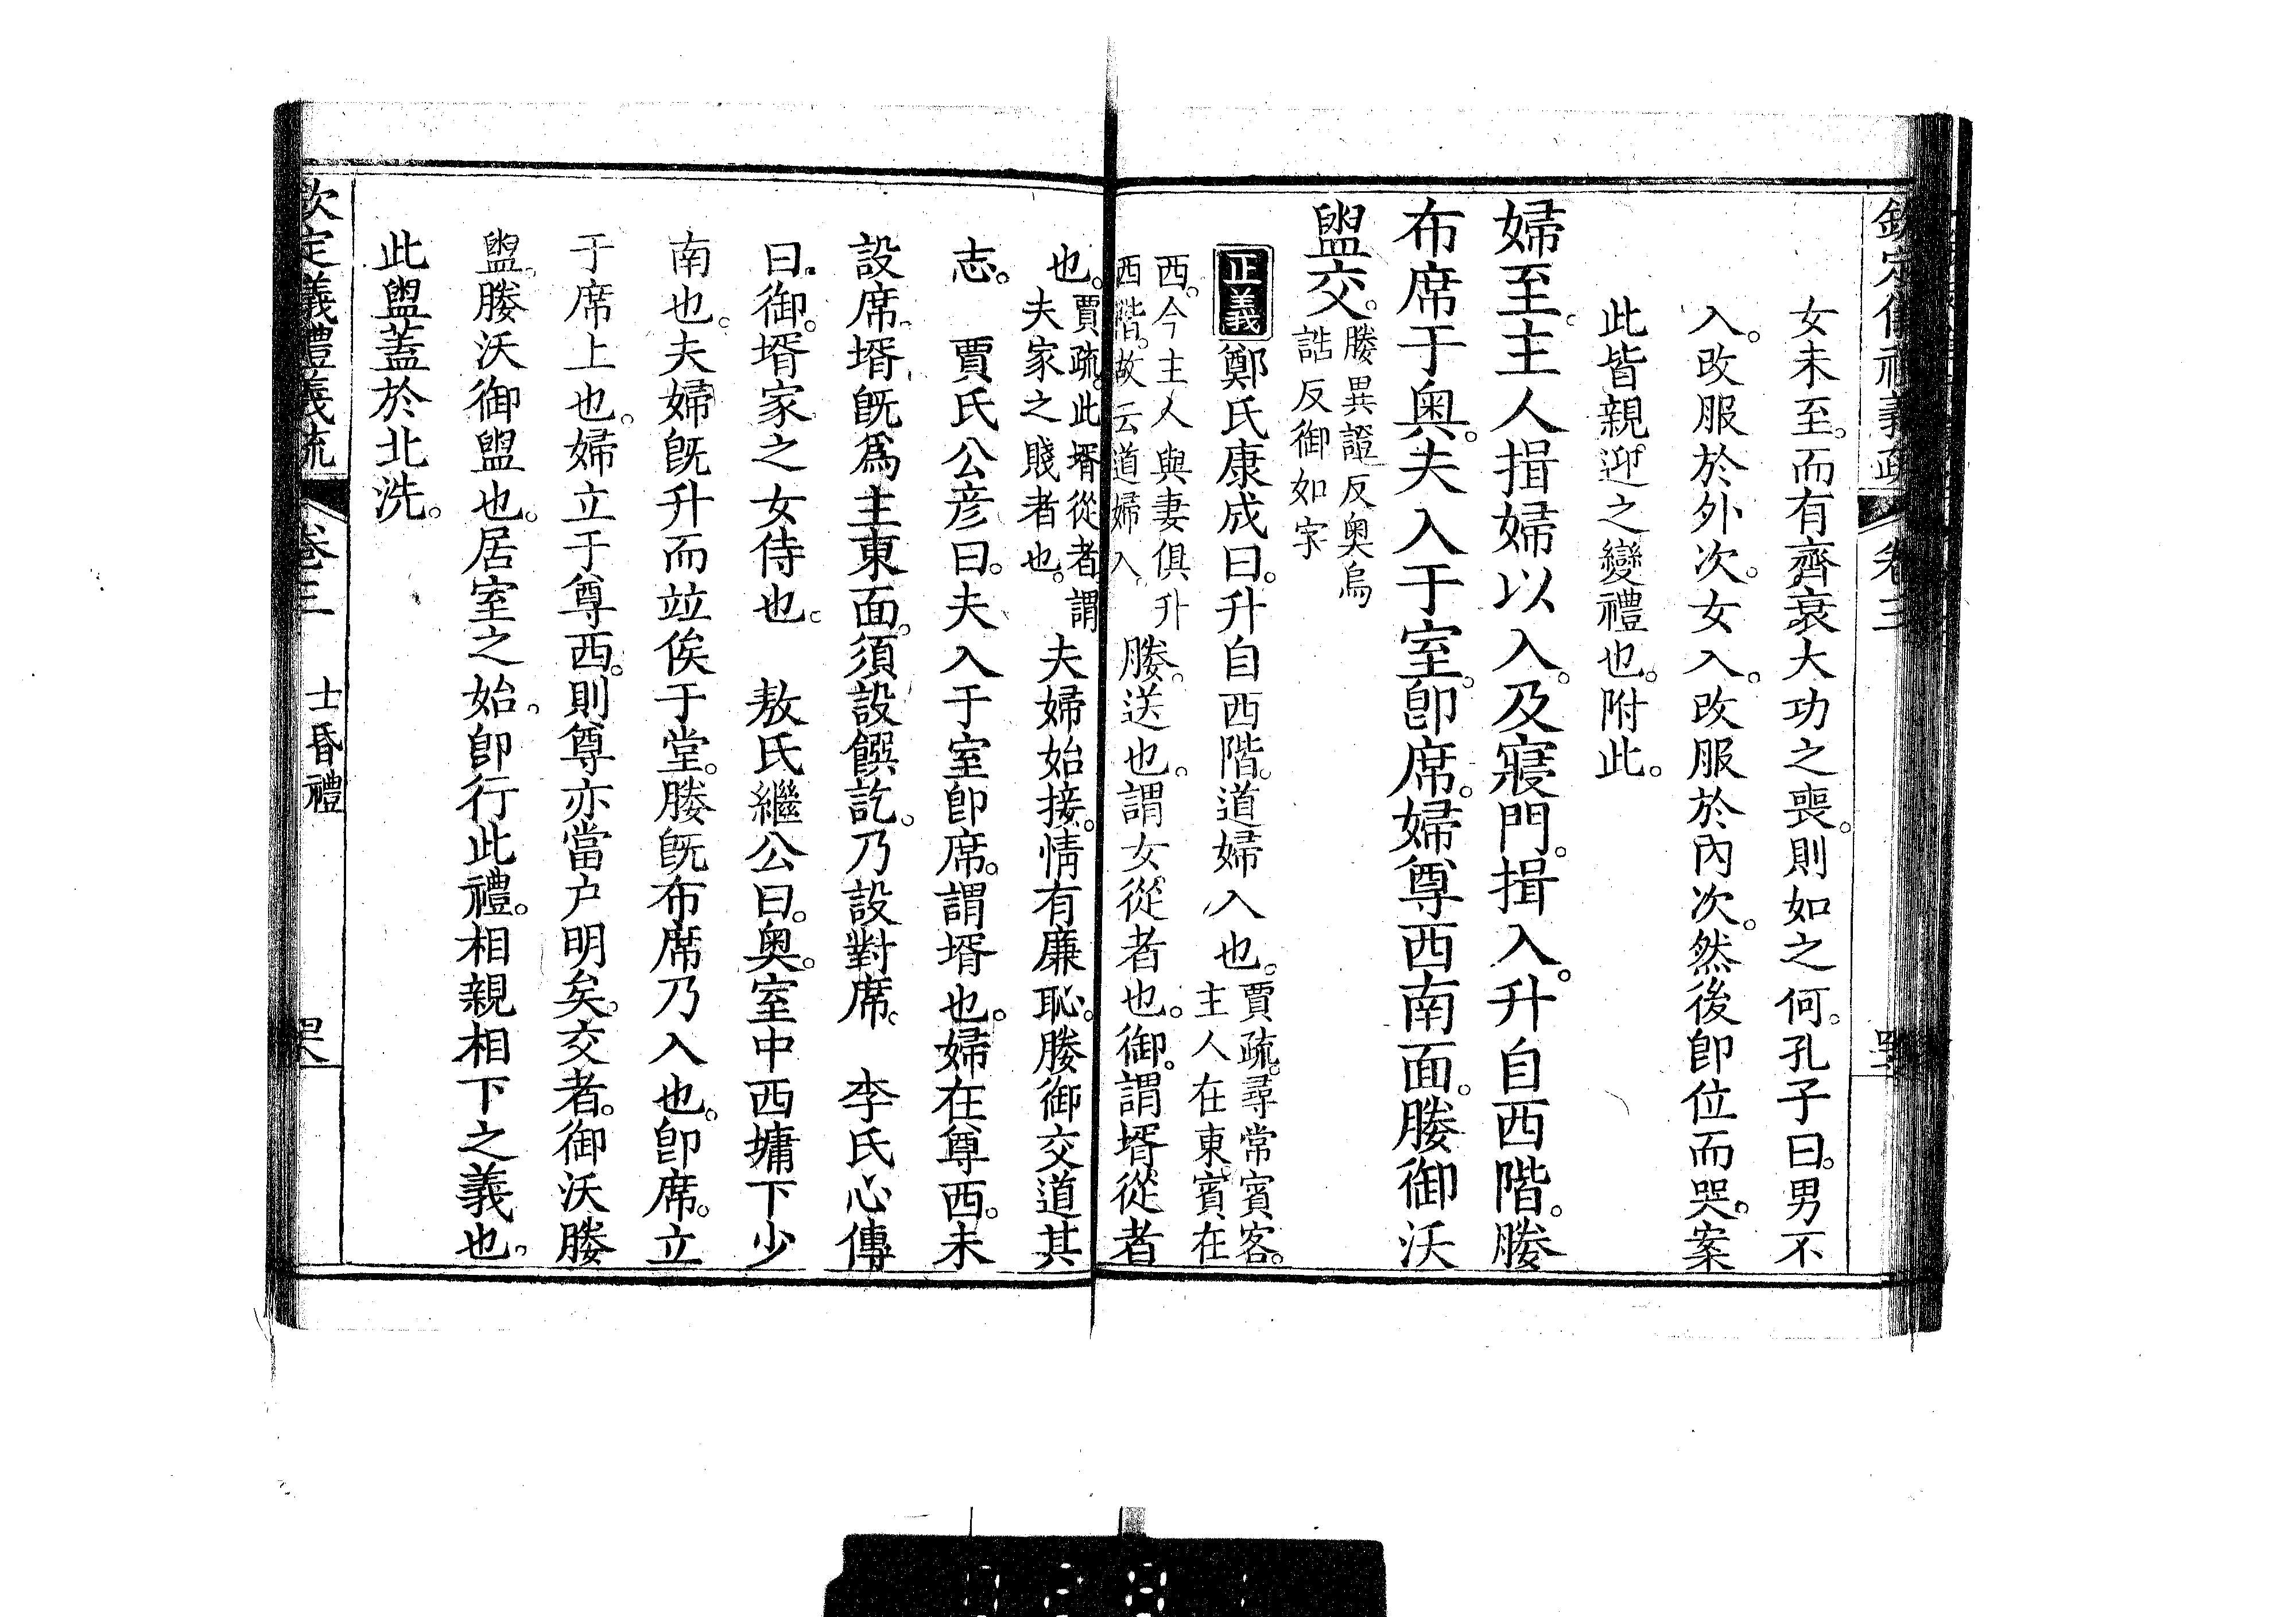 欽定儀禮義疏 卷三
女未至。而有齊衰大功之喪。則如之何。孔子曰。男不
入。改服於外次。女入。改服於內次。然後卽位而哭。案
此皆親迎之變禮也。附此。
婦至。主人揖婦以入。及寢門。揖入。升自西階。媵
布席于奧。夫入于室。卽席。婦尊西南面。媵御沃
盥交。媵異證反奧烏
誥反御如字
正義鄭氏康成曰。升自西階。道婦入也。賈疏。尋常賓客。
主人在東。賓在
西。今主人與妻俱升
西階。故云道婦入。媵。送也。謂女從者也。御。謂壻從者
也。賈疏。此壻從者。謂
夫家之賤者也。夫婦始接。情有廉恥。媵御交道其
志。 賈氏公彦曰。夫入于室卽席。謂壻也。婦在尊西。未
設席。壻旣爲主東面。須設饌訖。乃設對席。 李氏心傳
曰。御。壻家之女侍也。 敖氏繼公曰。奧。室中西墉下少
南也。夫婦旣升而竝俟于堂。媵旣布席乃入也。卽席。立
于席上也。婦立于尊西。則尊亦當户明矣。交者。御沃媵
盥。媵沃御盥也。居室之始。卽行此禮。相親相下之義也。
此盥蓋於北洗。
欽定儀禮義疏 卷三 士昏禮